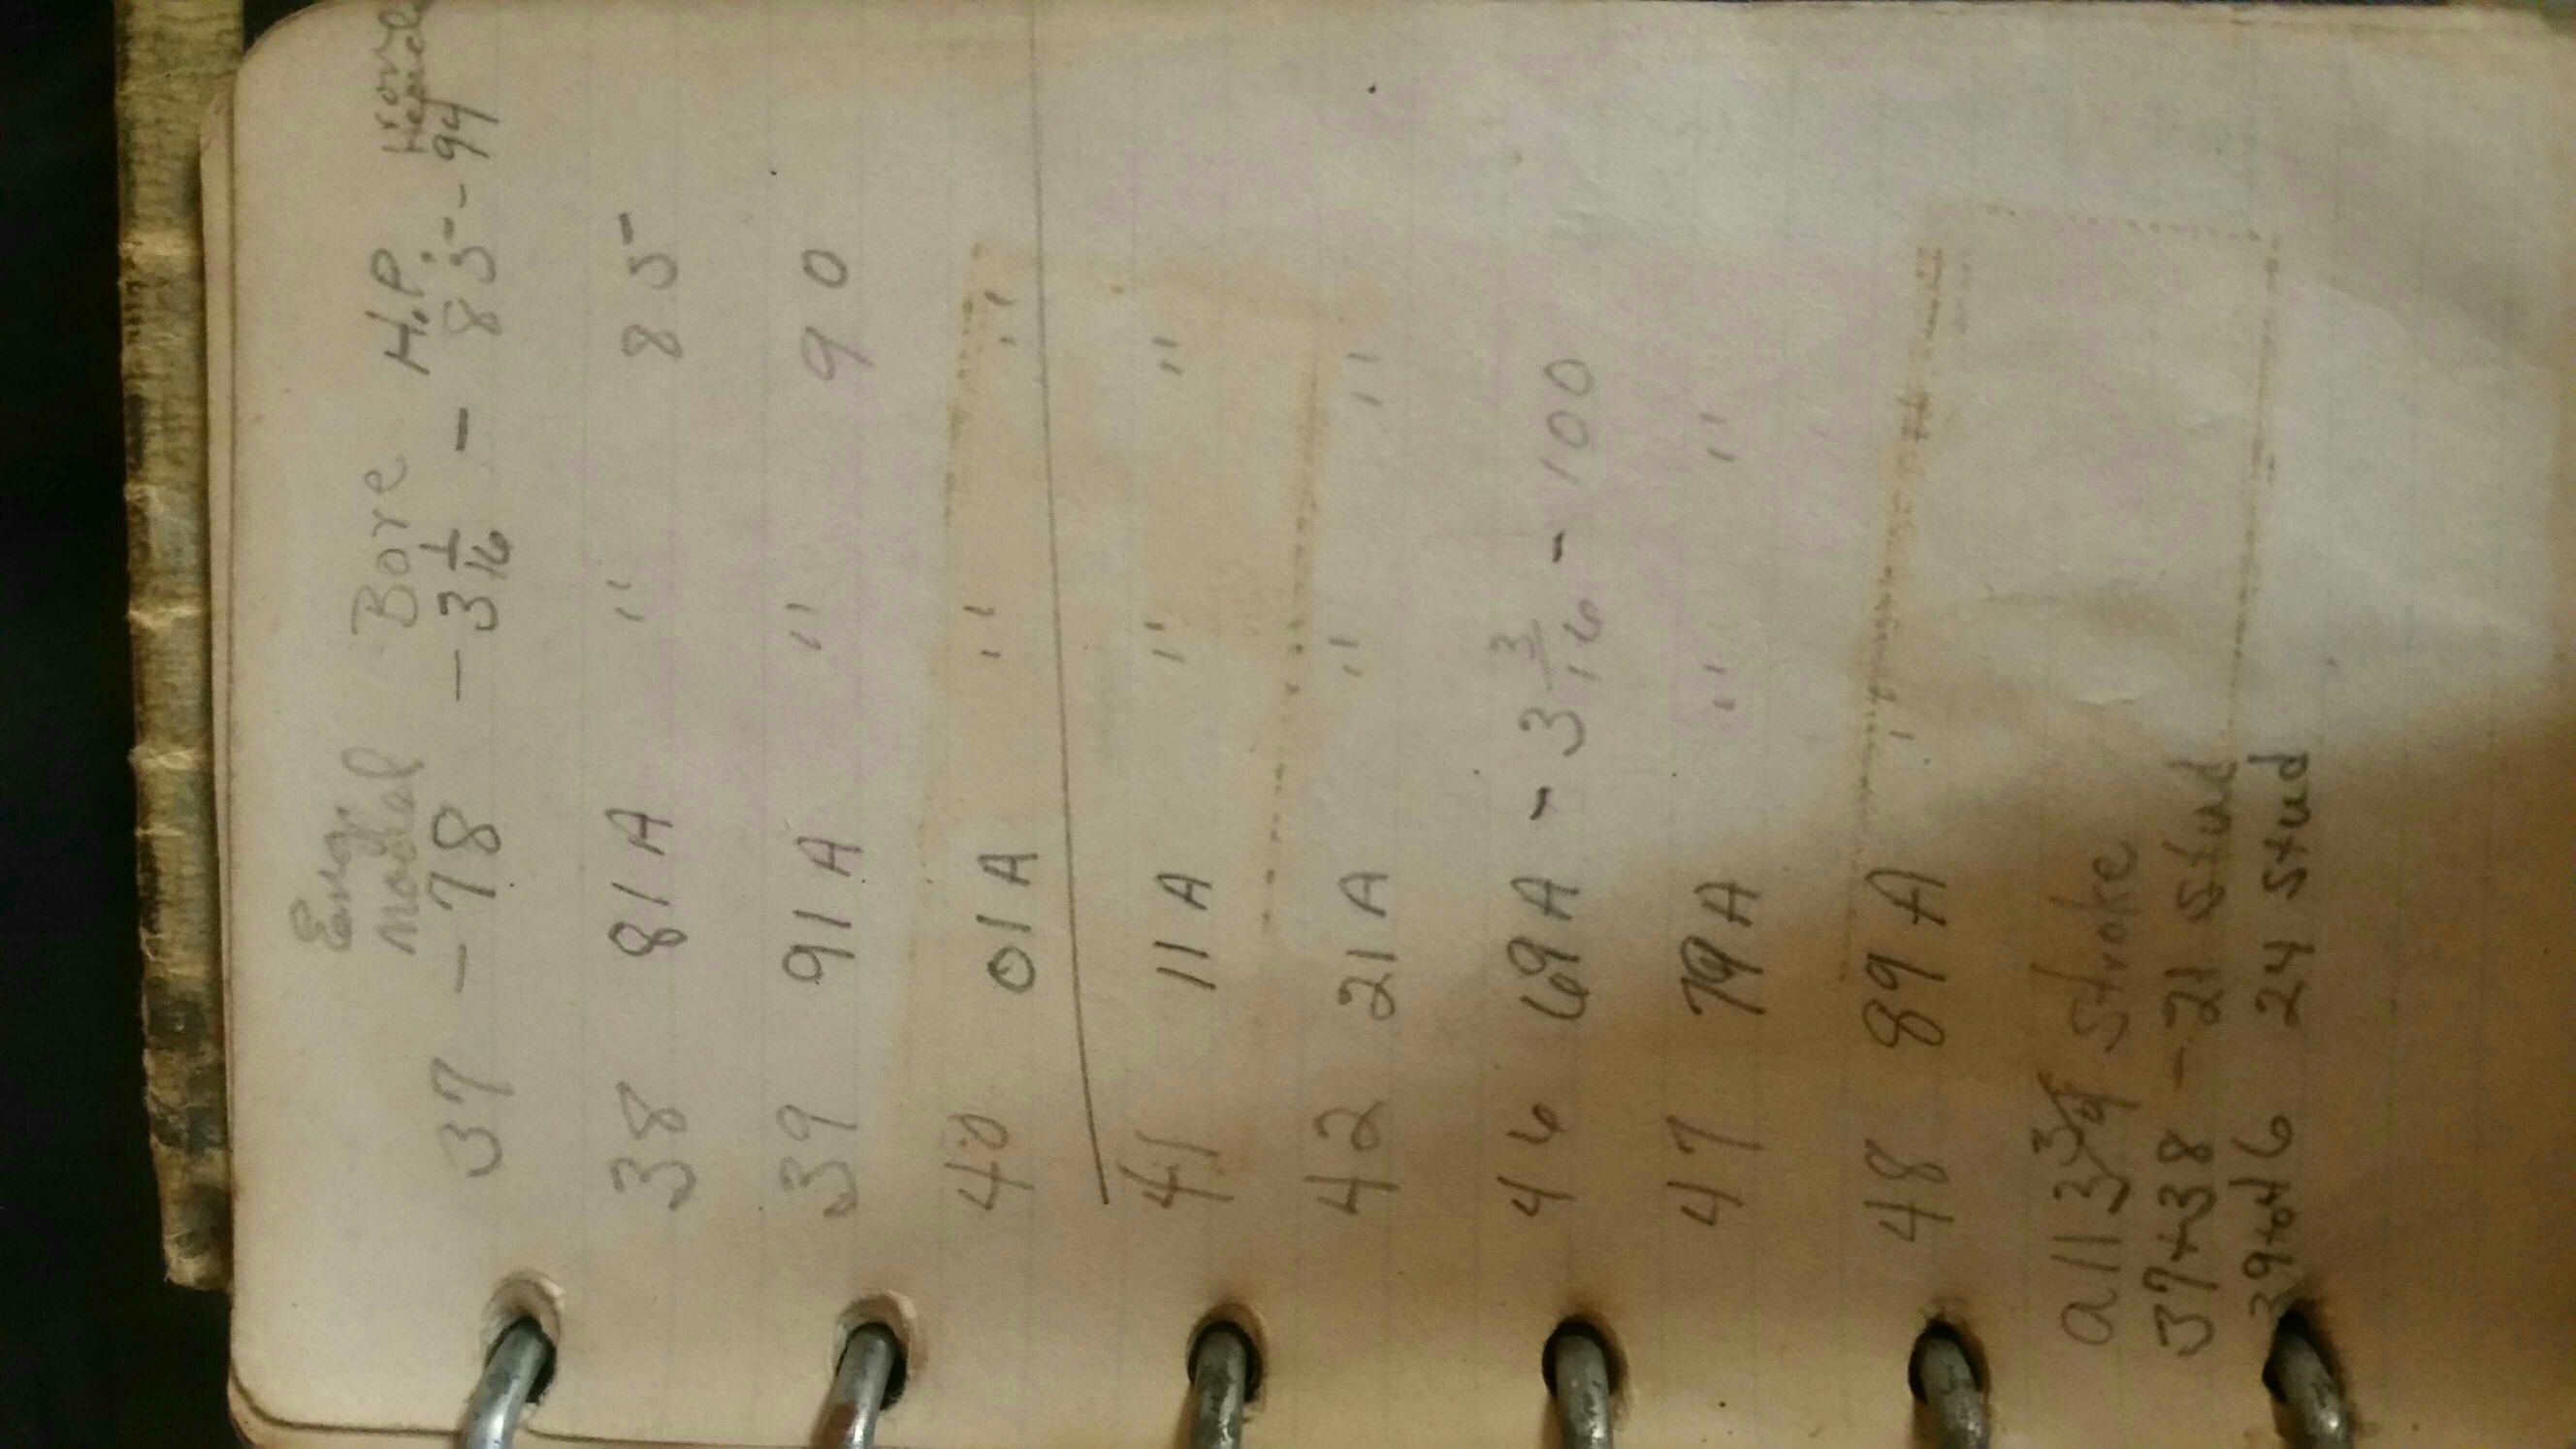 Eng. Bore H.P. Irone
model Heads
37 - 78 - 3 1/16 - 85 - 94
38 81A " 85
39 91A " 90
40 01A " "
41 11A " "
42 21A " "
46 69A - 3 3/16 - 100
47 79A " "
48 89A "
all 3 3/4 stroke
37+38 - 21 stud
39to46 24 stud